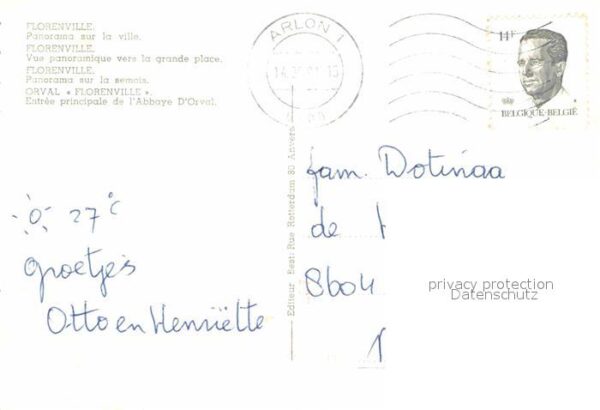 FLORENVILLE.
Panorama sur la ville.
FLORENVILLE.
Vue panoramique vers la grande place.
FLORENVILLE.
Panorama sur la semois.
ORVAL « FLORENVILLE ».
Entrée principale de l'Abbaye D'Orval.
ARLON 1
14F
BELGIQUE-BELGIË
Editeur Est: Rue Rotterdam 80 Anvers
27°C
groetjes
Otto en Henriëtte
fam.
de
8604
privacy protection
Datenschutz